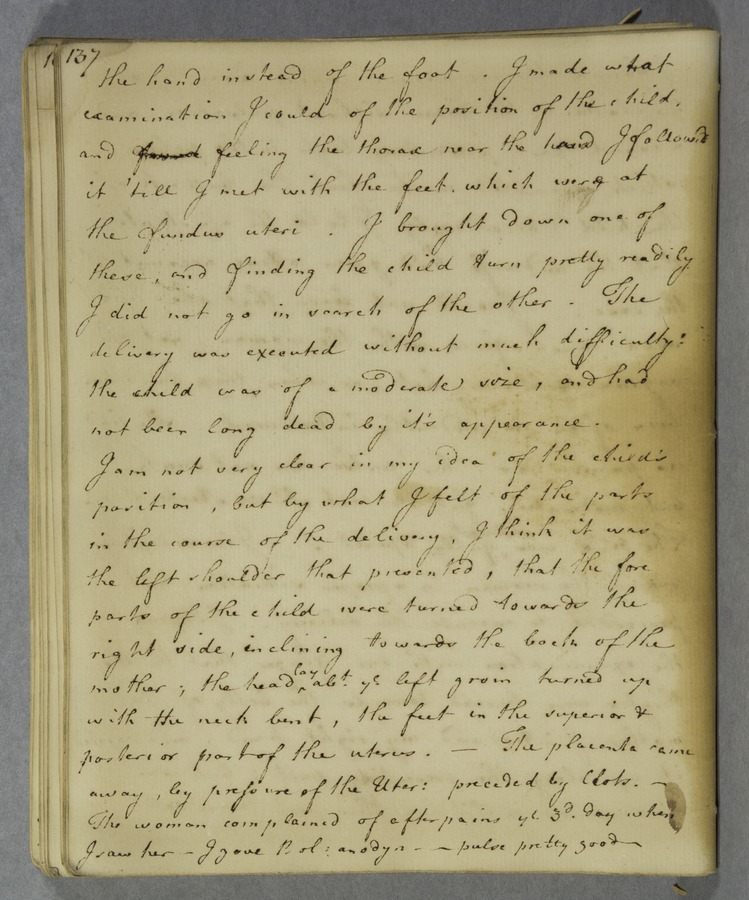 137
the hand instead of the foot. I made what
examination I could of the position of the child,
and feeling the thorax near the hand I followed
it 'till I met with the feet, which were at
the fundus uteri. I brought down one of
these, and finding the child turn pretty readily
I did not go in search of the other. The
delivery was executed without much difficulty:
the child was of a moderate size, and had
not been long dead by it's appearance.
I am not very clear in my idea of the child's
position, but by what I felt of the parts
in the course of the delivery, I think it was
the left shoulder that presented, that the fore
parts of the child were turned towards the
right side, inclining towards the back of the
mother; the head lay abt. ye left groin turned up
with the neck bent, the feet in the superior &
posterior part of the uterus. — The placenta came
away, by pressure of the Uter: preceded by Clots. —
The woman complained of afterpains ye 3d. day when
I saw her — I gave anodyn — pulse pretty good —